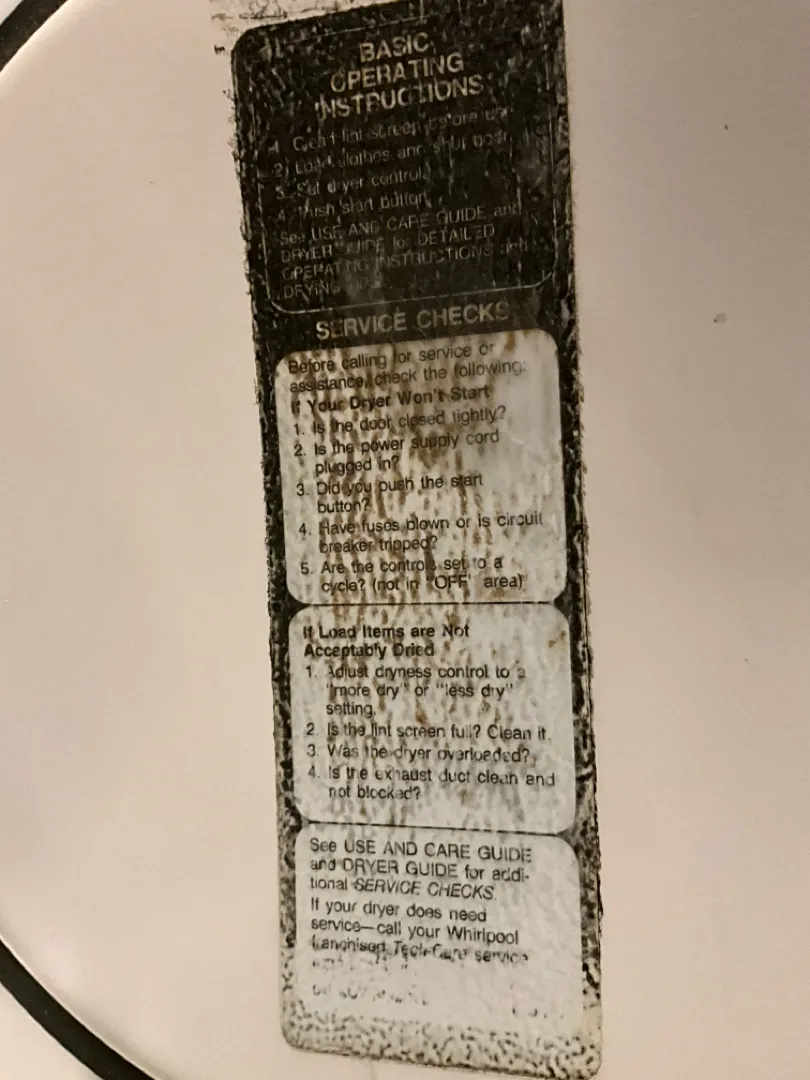 BASIC
OPERATING
INSTRUCTIONS
1. Clean lint screen before use
2. Load clothes and shut door
3. Set dryer control
4. Push start button
See USE AND CARE GUIDE and
DRYER GUIDE for DETAILED
OPERATING INSTRUCTIONS and
DRYING
SERVICE CHECKS
Before calling for service or
assistance, check the following:
If Your Dryer Won't Start
1. Is the door closed tightly?
2. Is the power supply cord
plugged in?
3. Did you push the start
button?
4. Have fuses blown or is circuit
breaker tripped?
5. Are the controls set to a
cycle? (not in "OFF" area)
If Load Items are Not
Acceptably Dried
1. Adjust dryness control to a
"more dry" or "less dry"
setting.
2. Is the lint screen full? Clean it.
3. Was the dryer overloaded?
4. Is the exhaust duct clean and
not blocked?
See USE AND CARE GUIDE
and DRYER GUIDE for addi-
tional SERVICE CHECKS.
If your dryer does need
service—call your Whirlpool
franchised Tech-Care service